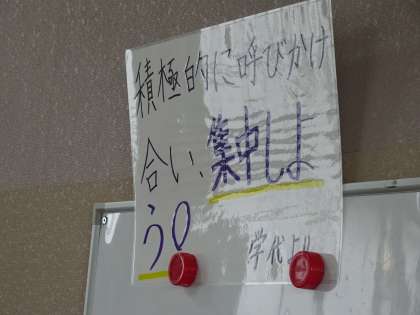 積極的に呼びかけ
合い、集中しよ
う。
学代より